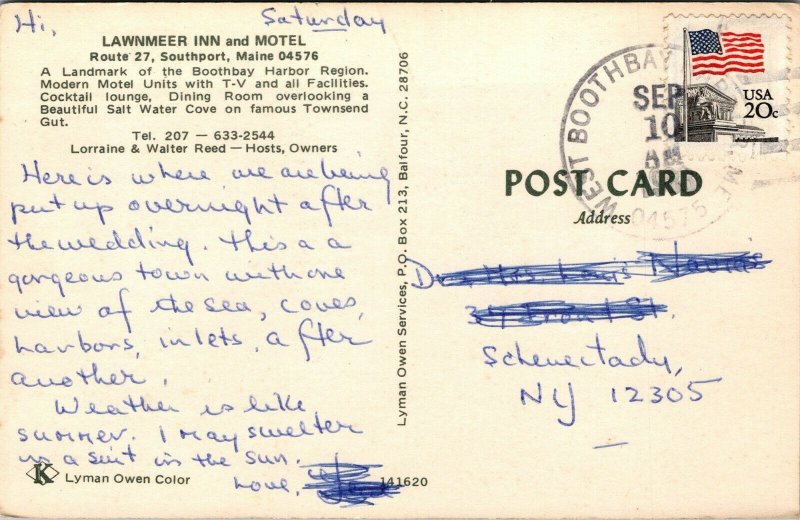 Hi, Saturday
LAWNMEER INN and MOTEL
Route 27, Southport, Maine 04576
A Landmark of the Boothbay Harbor Region.
Modern Motel Units with T-V and all Facilities.
Cocktail lounge, Dining Room overlooking a
Beautiful Salt Water Cove on famous Townsend
Gut.
Tel. 207 — 633-2544
Lorraine & Walter Reed — Hosts, Owners
Here is where we are being
put up overnight after
the wedding. This a a
gorgeous town with one
view of the sea, coves,
harbors, inlets, after
another.
Weather is like
summer. I may swelter
in a suit in the sun.
Love,
K Lyman Owen Color
141620
Lyman Owen Services, P.O. Box 213, Balfour, N.C. 28706
WEST BOOTHBAY
SEP
10
AM
ME
04575
USA
20c
POST CARD
Address
Schenectady,
NY 12305